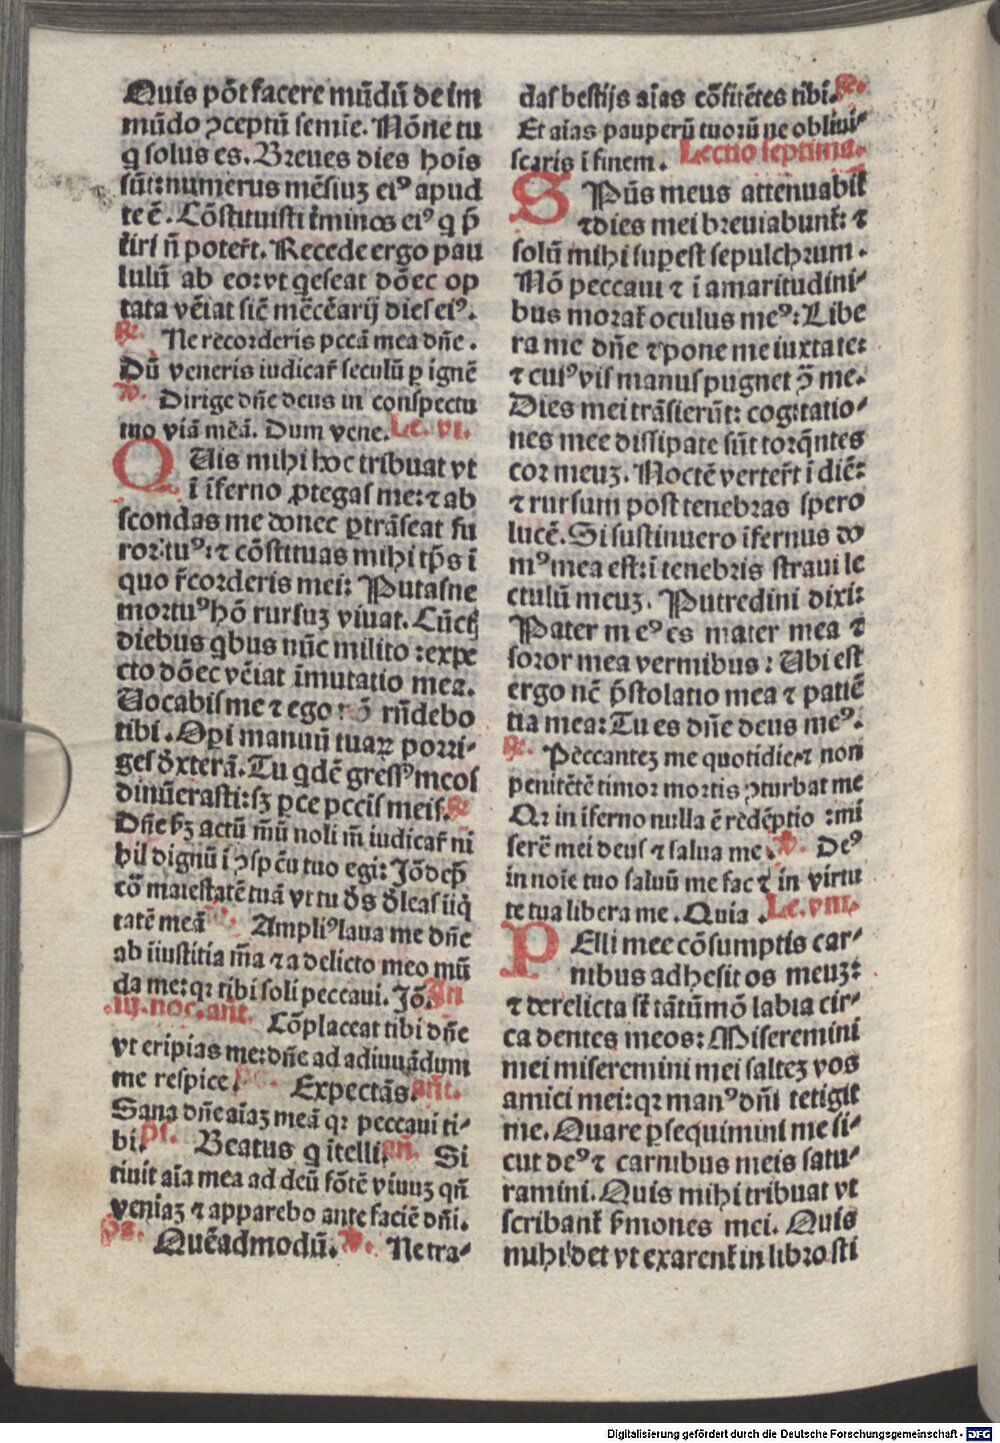 Quis põt facere mũdũ de im
mũdo ꝯceptũ semie̅. Nõne tu
q̇ solus es. Breues dies hoıs
sũt: numerus mẽsiuꝫ eiꝰ apud
te ẽ. Cõstituisti t̃minos eiꝰ q p̃
t̃iri ñ poter̃t. Recede ergo pau
lulũ ab eo: vt qescat dõec op
tata vẽiat sic̃ mẽcẽarij dies eiꝰ.
℟. Ne recorderis pccã mea dñe.
Dũ veneris iudicar̃ seculũ ꝑ ignẽ
℣. Dirige dñe deus in conspectu
tuo viã mẽã. Dum vene. Le. vi.
QUis mihi hoc tribuat vt
ĩ ĩferno ꝓtegas me: ⁊ ab
scondas me donec ꝑtrãseat fu
ror tuꝰ: ⁊ cõstituas mihi tp̃s ĩ
quo r̃corderis mei: Putasne
mortuꝰ hõ rursuꝫ viuat. Cũctꝭ
diebus qbus nũc milito: expe
cto dõec vẽiat ĩmutatio mea.
Uocabis me ⁊ ego rñdebo
tibi. Oꝑi manuũ tuaꝝ porri⸗
ges d̃xterã. Tu qdẽ gressꝰ meos
dinũerasti: sꝫ ꝑce pccis meis. ℟
Dñe s̃ꝫ actũ mũ noli m̃ iudicar̃ ni
hil dignũ ĩ ꝯspcũ tuo egi: Jõ dep̃
cõ maiestatẽ tuã vt tu d̃s d̃leas iiq̃
tatẽ meã Ampliꝰ laua me dñe
ab iiustitia m̃a ⁊ a delicto meo mũ
da me: qꝛ tibi soli peccaui. Jõ. In
.iij. noc. añt. Cõplaceat tibi dñe
vt eripias me: dñe ad adiuuãdum
me respice. ps. Expectãs. añt.
Sana dñe aĩaꝫ meã qꝛ peccaui ti⸗
bi. ps. Beatus q ĩtelli. añ. Si
tiuit aĩa mea ad deũ fõtẽ viuuꝫ qñ
veniaꝫ ⁊ apparebo ante faciẽ dñi.
ps. Quẽadmodũ. ℣. Ne tra⸗
das bestijs aĩas cõfitẽtes tibi. ℟.
Et aĩas pauperũ tuorũ ne obliui⸗
scaris ĩ finem. Lectio septima.
SPũs meus attenuabit̃
⁊ dies mei breuiabunt̃: ⁊
solũ mihi suꝑest sepulchrum.
Nõ peccaui ⁊ ĩ amaritudini⸗
bus morat̃ oculus meꝰ: Libe
ra me dñe ⁊ pone me iuxta te:
⁊ cuiꝰ vis manus pugnet ꝯ̃ me.
Dies mei trãsierũt: cogitatio⸗
nes mee dissipate sũt torq̃ntes
cor meuꝫ. Noctẽ verter̃t ĩ diẽ:
⁊ rursum post tenebras spero
lucẽ. Si sustinuero ĩfernus do
mꝰ mea est: ĩ tenebris straui le
ctulũ meuꝫ. Putredini dixi:
Pater meꝰ es mater mea ⁊
soror mea vermibus: Ubi est
ergo nũc p̃stolatio mea ⁊ patiẽ
tia mea: Tu es dñe deus meꝰ.
℟. Peccanteꝫ me quotidie: ⁊ non
penitẽtẽ timor mortis ꝯturbat me
Qꝛ in ĩferno nulla ẽ redẽptio: mi
serẽ mei deus ⁊ salua me. ℣. Deꝰ
in noĩe tuo saluũ me fac ⁊ in virtu
te tua libera me. Quia. Le. viii.
PElli mee cõsumptis car⸗
nibus adhesit os meuꝫ:
⁊ derelicta st̃ tãtũmõ labia cir⸗
ca dentes meos: Miseremini
mei miseremini mei salteꝫ vos
amici mei: qꝛ manꝰ dñi tetigit
me. Quare ꝑsequimini me si⸗
cut deꝰ ⁊ carnibus meis satu⸗
ramini. Quis mihi tribuat vt
scribant̃ s̃mones mei. Quis
mihi det vt exarent̃ in libro sti
Digitalisierung gefördert durch die Deutsche Forschungsgemeinschaft - DFG